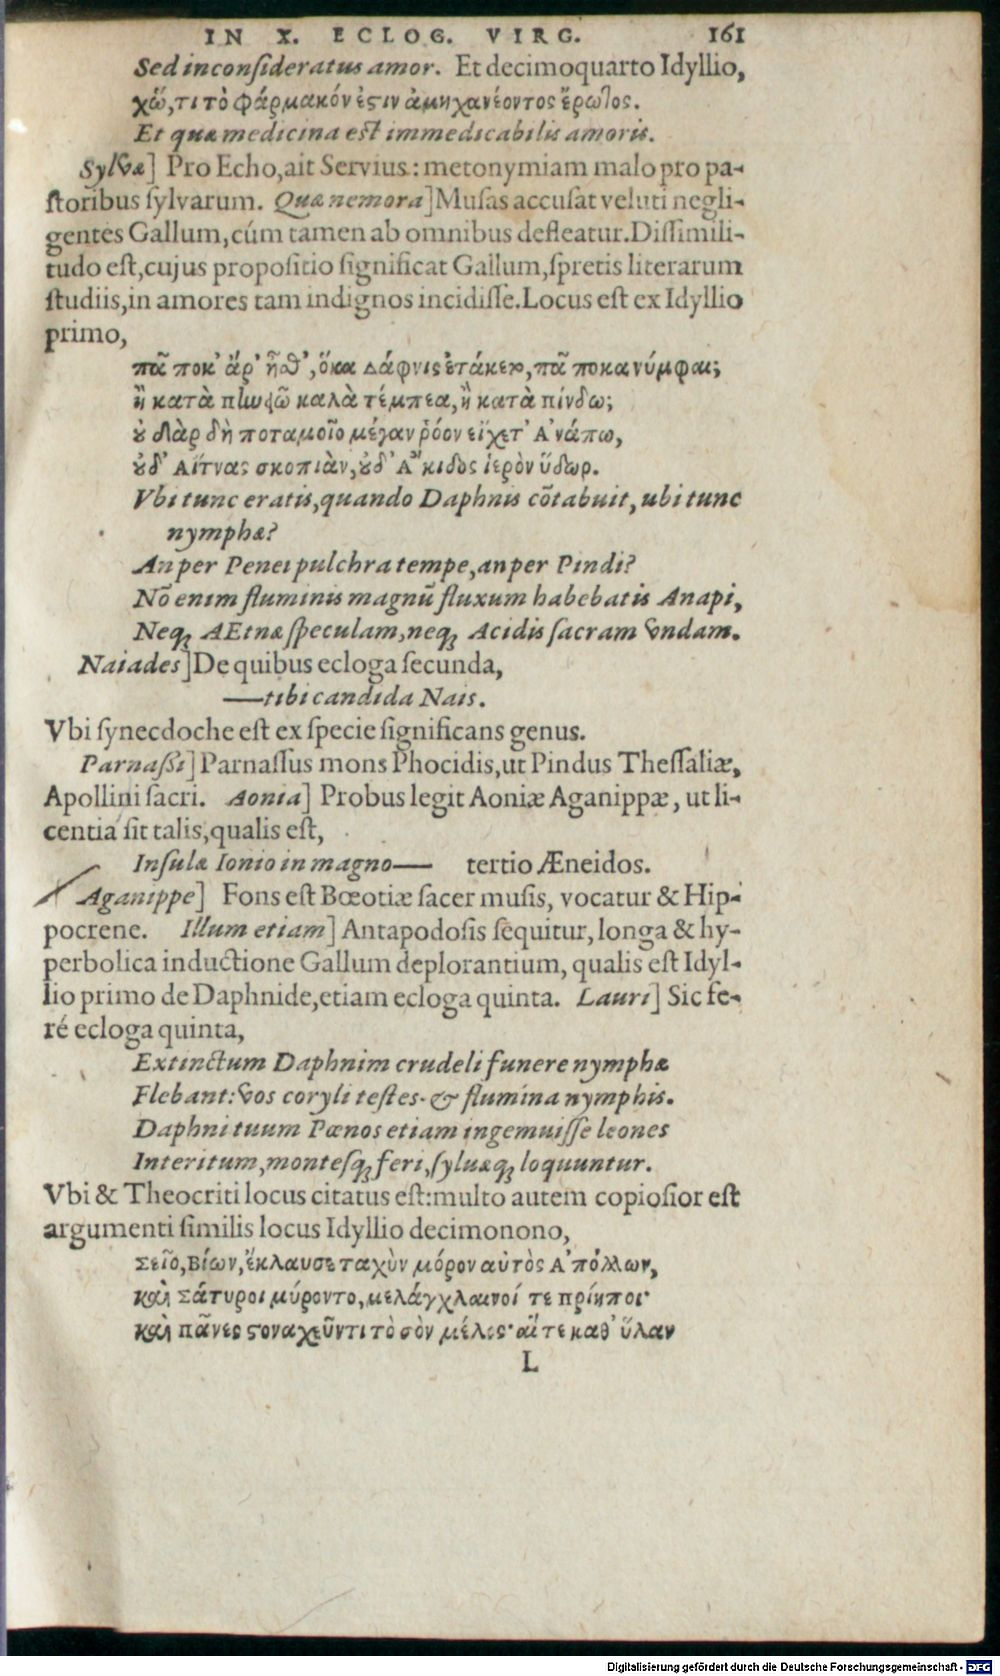 IN X. ECLOG. VIRG. 161
Sed inconsideratus amor. Et decimoquarto Idyllio,
χὤ,τι τὸ φάρμακόν ἐστιν ἀμηχανέοντος ἔρωτος.
Et quæ medicina est immedicabilis amoris.
Sylvæ] Pro Echo, ait Servius: metonymiam malo pro pa-
storibus sylvarum. Quæ nemora] Musas accusat veluti negli-
gentes Gallum, cúm tamen ab omnibus defleatur. Dissimili-
tudo est, cujus propositio significat Gallum, spretis literarum
studiis, in amores tam indignos incidisse. Locus est ex Idyllio
primo,
πᾶ ποκ' ἄρ' ἦθ', ὅκα Δάφνις ἐτάκετο, πᾶ ποκα νύμφαι;
ἢ κατὰ πηνειῶ καλὰ τέμπεα, ἢ κατὰ πίνδω;
οὐ γὰρ δὴ ποταμοῖο μέγαν ῥόον εἴχετ' Ἀνάπω,
οὐδ' Αἴτνας σκοπιὰν, οὐδ' Ἄκιδος ἱερὸν ὕδωρ.
Vbi tunc eratis, quando Daphnis cōtabuit, ubi tunc
nymphæ?
An per Penei pulchra tempe, an per Pindi?
Nō enim fluminis magnū fluxum habebatis Anapi,
Neq; AEtnæ speculam, neq; Acidis sacram vndam.
Naiades] De quibus ecloga secunda,
—tibi candida Nais.
Vbi synecdoche est ex specie significans genus.
Parnassi] Parnassus mons Phocidis, ut Pindus Thessaliæ,
Apollini sacri. Aonia] Probus legit Aoniæ Aganippæ, ut li-
centia sit talis, qualis est,
Insulæ Ionio in magno— tertio Æneidos.
Aganippe] Fons est Bœotiæ sacer musis, vocatur & Hip-
pocrene. Illum etiam] Antapodosis sequitur, longa & hy-
perbolica inductione Gallum deplorantium, qualis est Idyl-
lio primo de Daphnide, etiam ecloga quinta. Lauri] Sic fe-
ré ecloga quinta,
Extinctum Daphnim crudeli funere nymphæ
Flebant: vos coryli testes & flumina nymphis.
Daphni tuum Pœnos etiam ingemuisse leones
Interitum, montesq; feri, syluæq; loquuntur.
Vbi & Theocriti locus citatus est: multo autem copiosior est
argumenti similis locus Idyllio decimonono,
Σεῖο, Βίων, ἔκλαυσε ταχὺν μόρον αὐτὸς Ἀπόλλων,
καὶ Σάτυροι μύροντο, μελάγχλαινοί τε πρίηποι·
καὶ πᾶνες στοναχεῦντι τὸ σὸν μέλος· αἵ τε καθ' ὕλαν
L
Digitalisierung gefördert durch die Deutsche Forschungsgemeinschaft - DFG